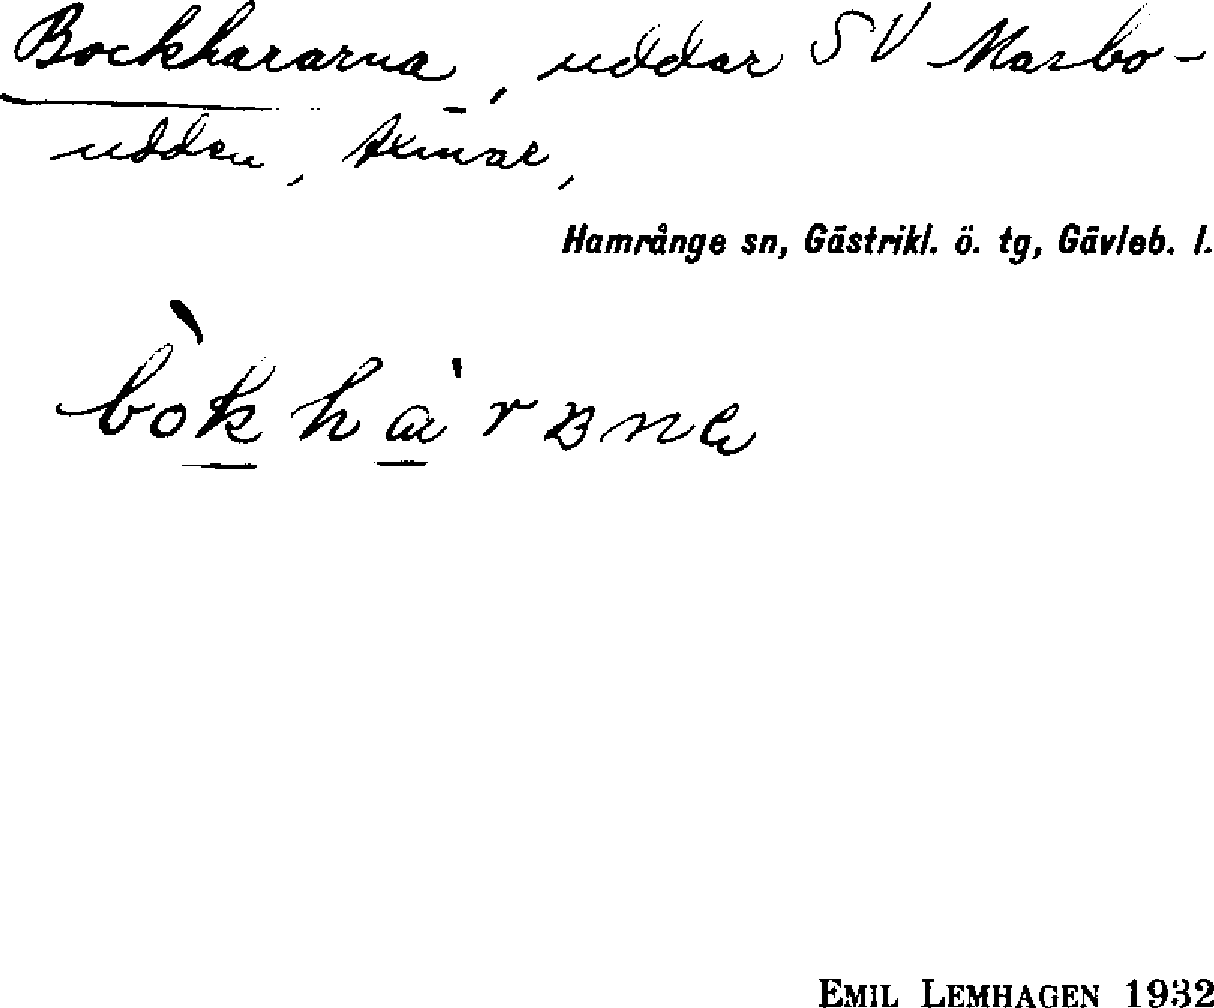 Bockhararna, uddar SV Marbo-
udden, Axmar,
Hamrånge sn, Gästrikl. ö. tg, Gävleb. l.
EMIL LEMHAGEN 1932